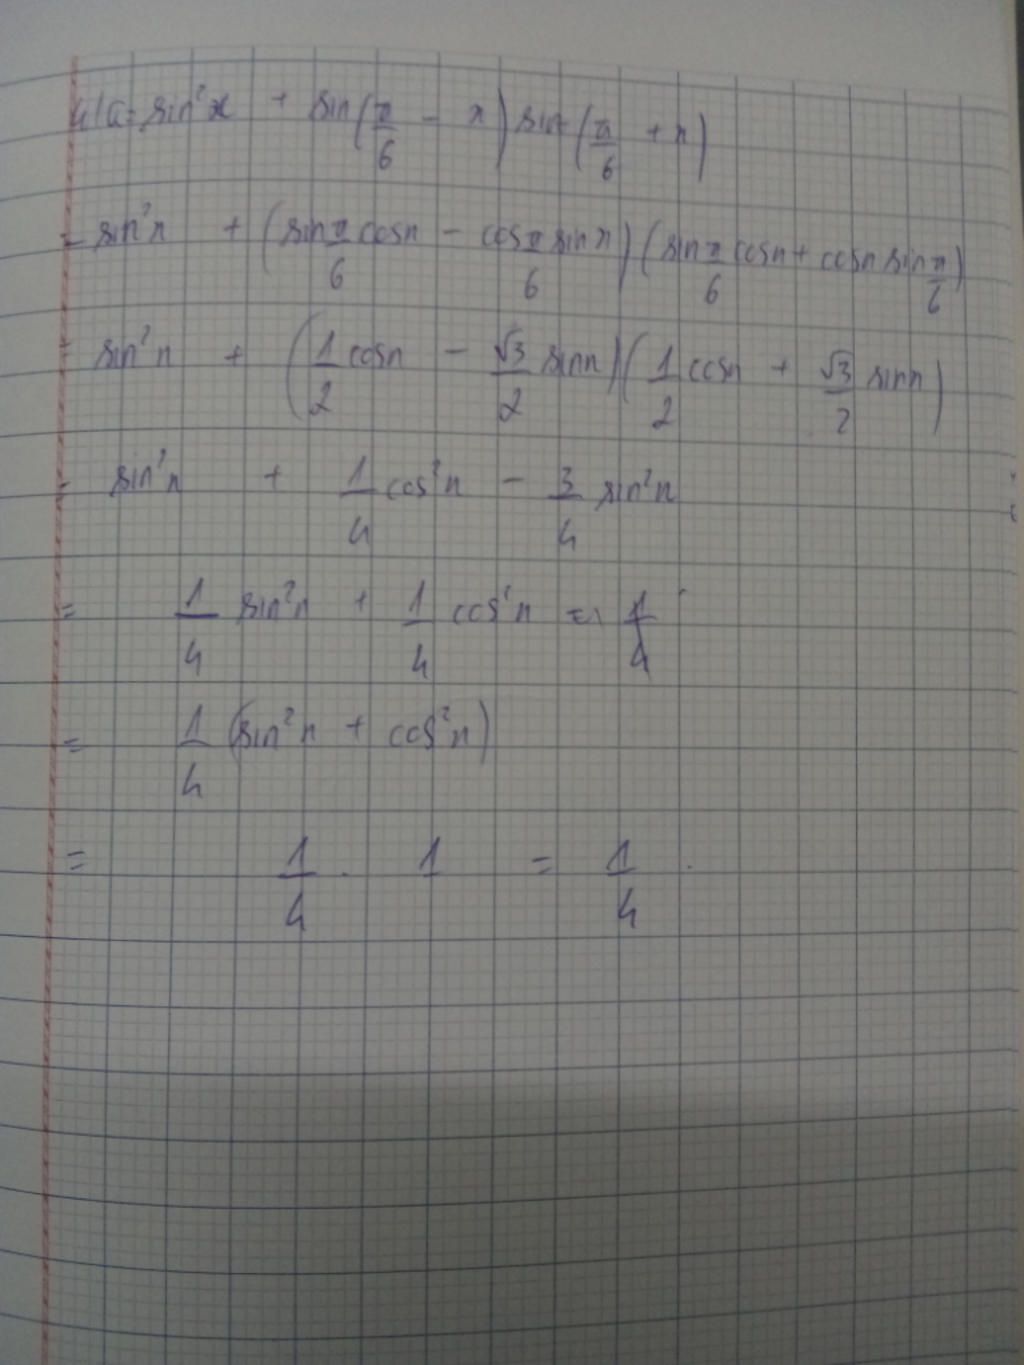 4/ G = sin²x + sin(π/6 - x) sin(π/6 + x)
= sin²x + (sin π/6 cosx - cos π/6 sin x)(sin π/6 cosx + cosx sin π/6)
= sin²x + (1/2 cosx - √3/2 sinx)(1/2 cosx + √3/2 sinx)
= sin²x + 1/4 cos²x - 3/4 sin²x
= 1/4 sin²x + 1/4 cos²x = 1/4
= 1/4 (sin²x + cos²x)
= 1/4 . 1 = 1/4 .